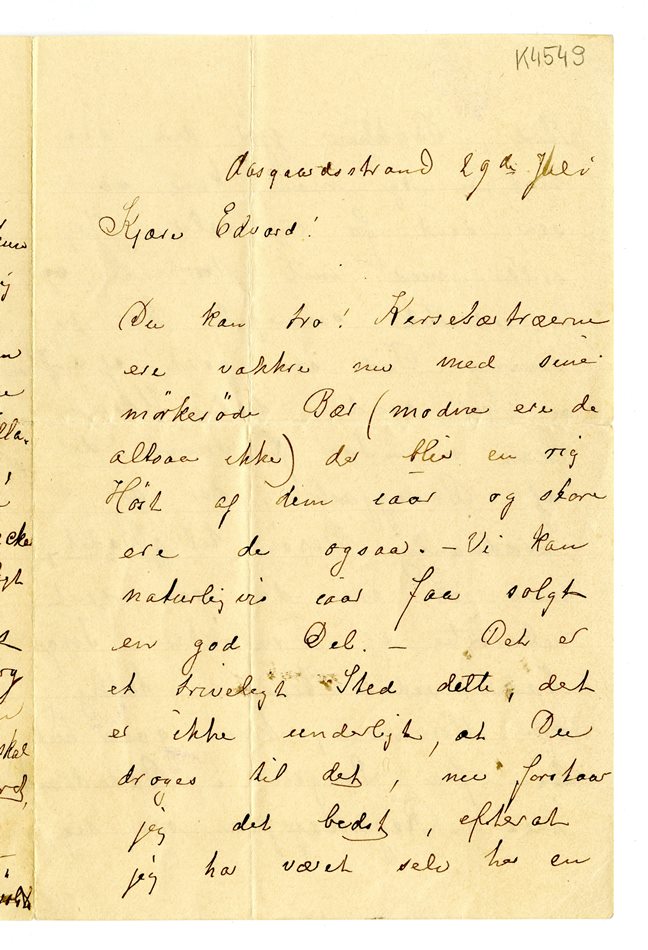 K4549
Aasgaardsstrand 29de Juli
Kjære Edvard!
Du kan tro! Kersebærtræerne
ere vakkre nu med sine
mörkeröde Bær (modne ere de
altsaa ikke) der blir en rig
Höst af dem iaar og store
ere de ogsaa. – Vi kan
naturligvis iaar faa solgt
en god Del. – Det er
et triveligt Sted dette, det
er ikke underligt, at Du
droges til det, nu forstaar
jeg det bedst, efterat
jeg har været selv her en